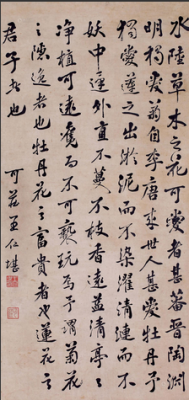 水陸草木之可愛者甚蕃晉陶淵
明獨愛菊自李唐來世人甚愛牡丹予
獨愛蓮之出淤泥而不染濯清漣而不
妖中通外直不蔓不枝香遠益清亭〻
净植可遠觀而不可褻玩焉予謂菊花
之隱逸者也牡丹花之富貴者也蓮花之
君子者也
可莊王仁堪